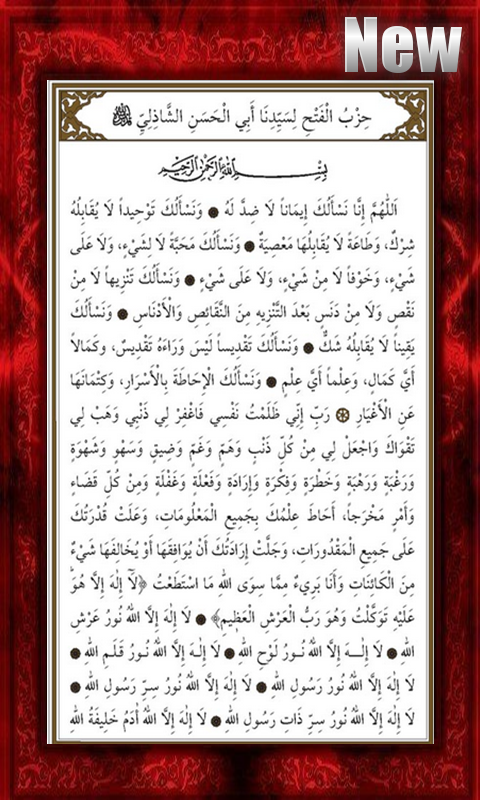 New
حِزْبُ الْفَتْحِ لِسَيِّدِنَا أَبِي الْحَسَنِ الشَّاذِلِيِّ
بِسْمِ اللهِ الرَّحْمٰنِ الرَّحِيمِ
اَللّٰهُمَّ إِنَّا نَسْأَلُكَ إِيمَاناً لَا ضِدَّ لَهُ ۞ وَنَسْأَلُكَ تَوْحِيداً لَا يُقَابِلُهُ
شِرْكٌ، وَطَاعَةً لَا يُقَابِلُهَا مَعْصِيَةٌ ۞ وَنَسْأَلُكَ مَحَبَّةً لَا لِشَيْءٍ، وَلَا عَلَى
شَيْءٍ، وَخَوْفاً لَا مِنْ شَيْءٍ، وَلَا عَلَى شَيْءٍ ۞ وَنَسْأَلُكَ تَنْزِيهاً لَا مِنْ
نَقْصٍ وَلَا مِنْ دَنَسٍ بَعْدَ التَّنْزِيهِ مِنَ النَّقَائِصِ وَالْأَدْنَاسِ ۞ وَنَسْأَلُكَ
يَقِيناً لَا يُقَابِلُهُ شَكٌّ ۞ وَنَسْأَلُكَ تَقْدِيساً لَيْسَ وَرَاءَهُ تَقْدِيسٌ، وَكَمَالاً
أَيَّ كَمَالٍ، وَعِلْماً أَيَّ عِلْمٍ ۞ وَنَسْأَلُكَ الْإِحَاطَةَ بِالْأَسْرَارِ، وَكِتْمَانَهَا
عَنِ الْأَغْيَارِ ۞ رَبِّ إِنِّي ظَلَمْتُ نَفْسِي فَاغْفِرْ لِي ذَنْبِي وَهَبْ لِي
تَقْوَاكَ وَاجْعَلْ لِي مِنْ كُلِّ ذَنْبٍ وَهَمٍّ وَغَمٍّ وَضِيقٍ وَسَهْوٍ وَشَهْوَةٍ
وَرَغْبَةٍ وَرَهْبَةٍ وَخَطْرَةٍ وَفِكْرَةٍ وَإِرَادَةٍ وَفَعْلَةٍ وَغَفْلَةٍ وَمِنْ كُلِّ قَضَاءٍ
وَأَمْرٍ مَخْرَجاً، أَحَاطَ عِلْمُكَ بِجَمِيعِ الْمَعْلُومَاتِ، وَعَلَتْ قُدْرَتُكَ
عَلَى جَمِيعِ الْمَقْدُورَاتِ، وَجَلَّتْ إِرَادَتُكَ أَنْ يُوَافِقَهَا أَوْ يُخَالِفَهَا شَيْءٌ
مِنَ الْكَائِنَاتِ وَأَنَا بَرِيءٌ مِمَّا سِوَى اللهِ مَا اسْتَطَعْتُ ﴿لَآ إِلٰهَ إِلَّا هُوَ
عَلَيْهِ تَوَكَّلْتُ وَهُوَ رَبُّ الْعَرْشِ الْعَظِيمِ﴾ ۞ لَا إِلٰهَ إِلَّا اللهُ نُورُ عَرْشِ
اللهِ ۞ لَا إِلٰهَ إِلَّا اللهُ نُورُ لَوْحِ اللهِ ۞ لَا إِلٰهَ إِلَّا اللهُ نُورُ قَلَمِ اللهِ ۞
لَا إِلٰهَ إِلَّا اللهُ نُورُ رَسُولِ اللهِ ۞ لَا إِلٰهَ إِلَّا اللهُ نُورُ سِرِّ رَسُولِ اللهِ ۞
لَا إِلٰهَ إِلَّا اللهُ نُورُ سِرِّ ذَاتِ رَسُولِ اللهِ ۞ لَا إِلٰهَ إِلَّا اللهُ آدَمُ خَلِيفَةُ اللهِ